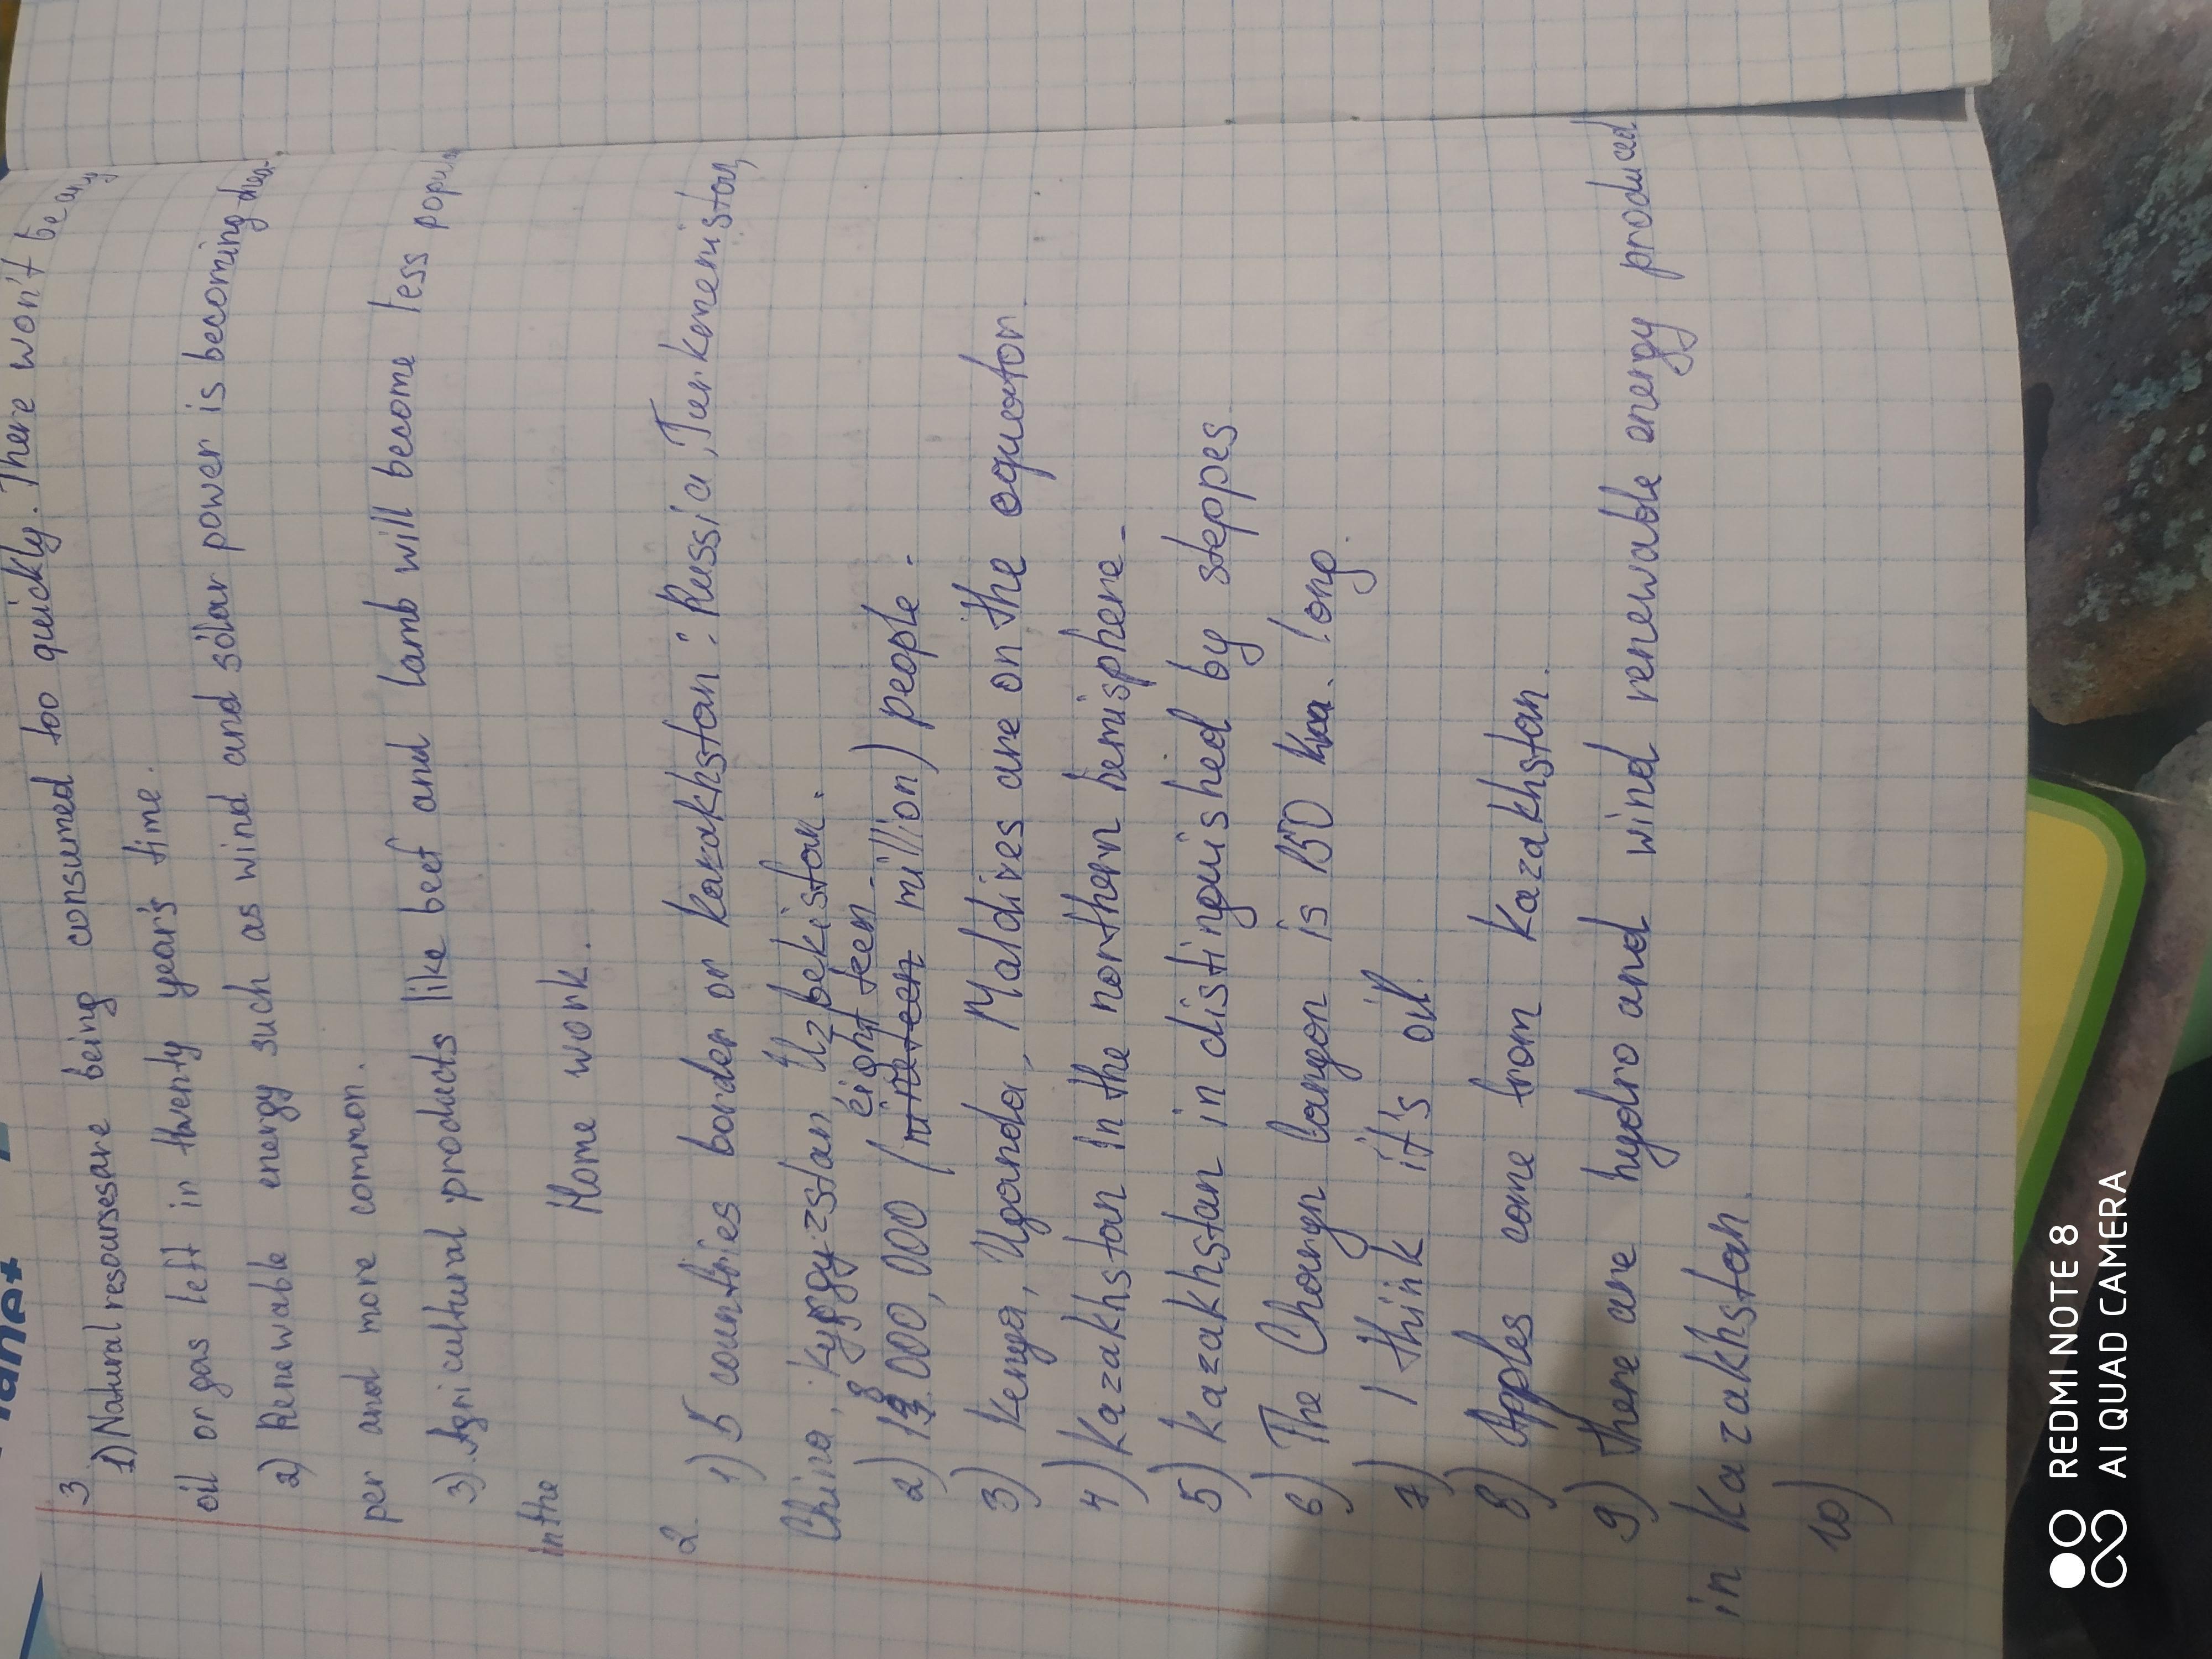 3
1) Natural resoursesare being consumed too quickly. There won't be any
oil or gas left in twenty year's time.
2) Renewable energy such as wind and solar power is becoming chea-
per and more common.
3) Agricultural products like beef and lamb will become less popu
in the
Home work.
2. 1) 5 countries border on Kazakhstan: Russia, Turkmenistan,
China, Kyrgyzstan, Uzbekistan.
eight teen
2) 18 000, 000 (nineteen million) people.
3) Kenya, Uganda, Maldives are on the equator
4) Kazakhstan in the northern hemisphere.
5) Kazakhstan in distinguished by steppes.
6) The Charyn Canyon is 150 km. long.
7) I think it's oil.
8) Apples come from Kazakhstan.
9) there are hydro and wind renewable energy produced
in Kazakhstan.
10)
REDMI NOTE 8
AI QUAD CAMERA